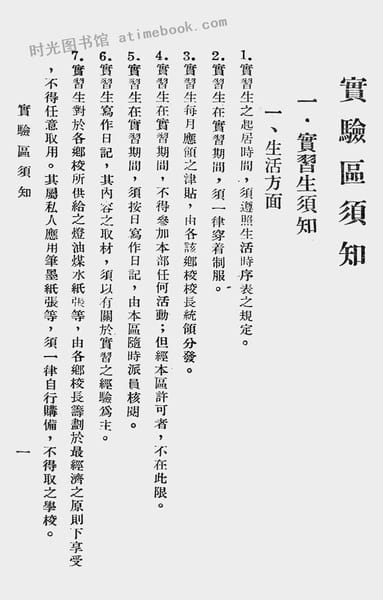 时光图书馆 · atimebook.com
實驗區須知
一．實習生須知
一、生活方面
1．實習生之起居時間，須遵照生活時序表之規定。
2．實習生在實習期間，須一律穿着制服。
3．實習生每月應領之津貼，由各該鄉校校長統領分發。
4．實習生在實習期間，不得參加本部任何活動；但經本區許可者，不在此限。
5．實習生在實習期間，須按日寫作日記，由本區隨時派員核閱。
6．實習生寫作日記，其內容之取材，須以有關於實習之經驗爲主。
7．實習生對於各鄉校所供給之燈油煤水紙張等，由各鄉校長籌劃於最經濟之原則下享受
，不得任意取用。其屬私人應用筆墨紙張等，須一律自行購備，不得取之學校。
實驗區須知
一